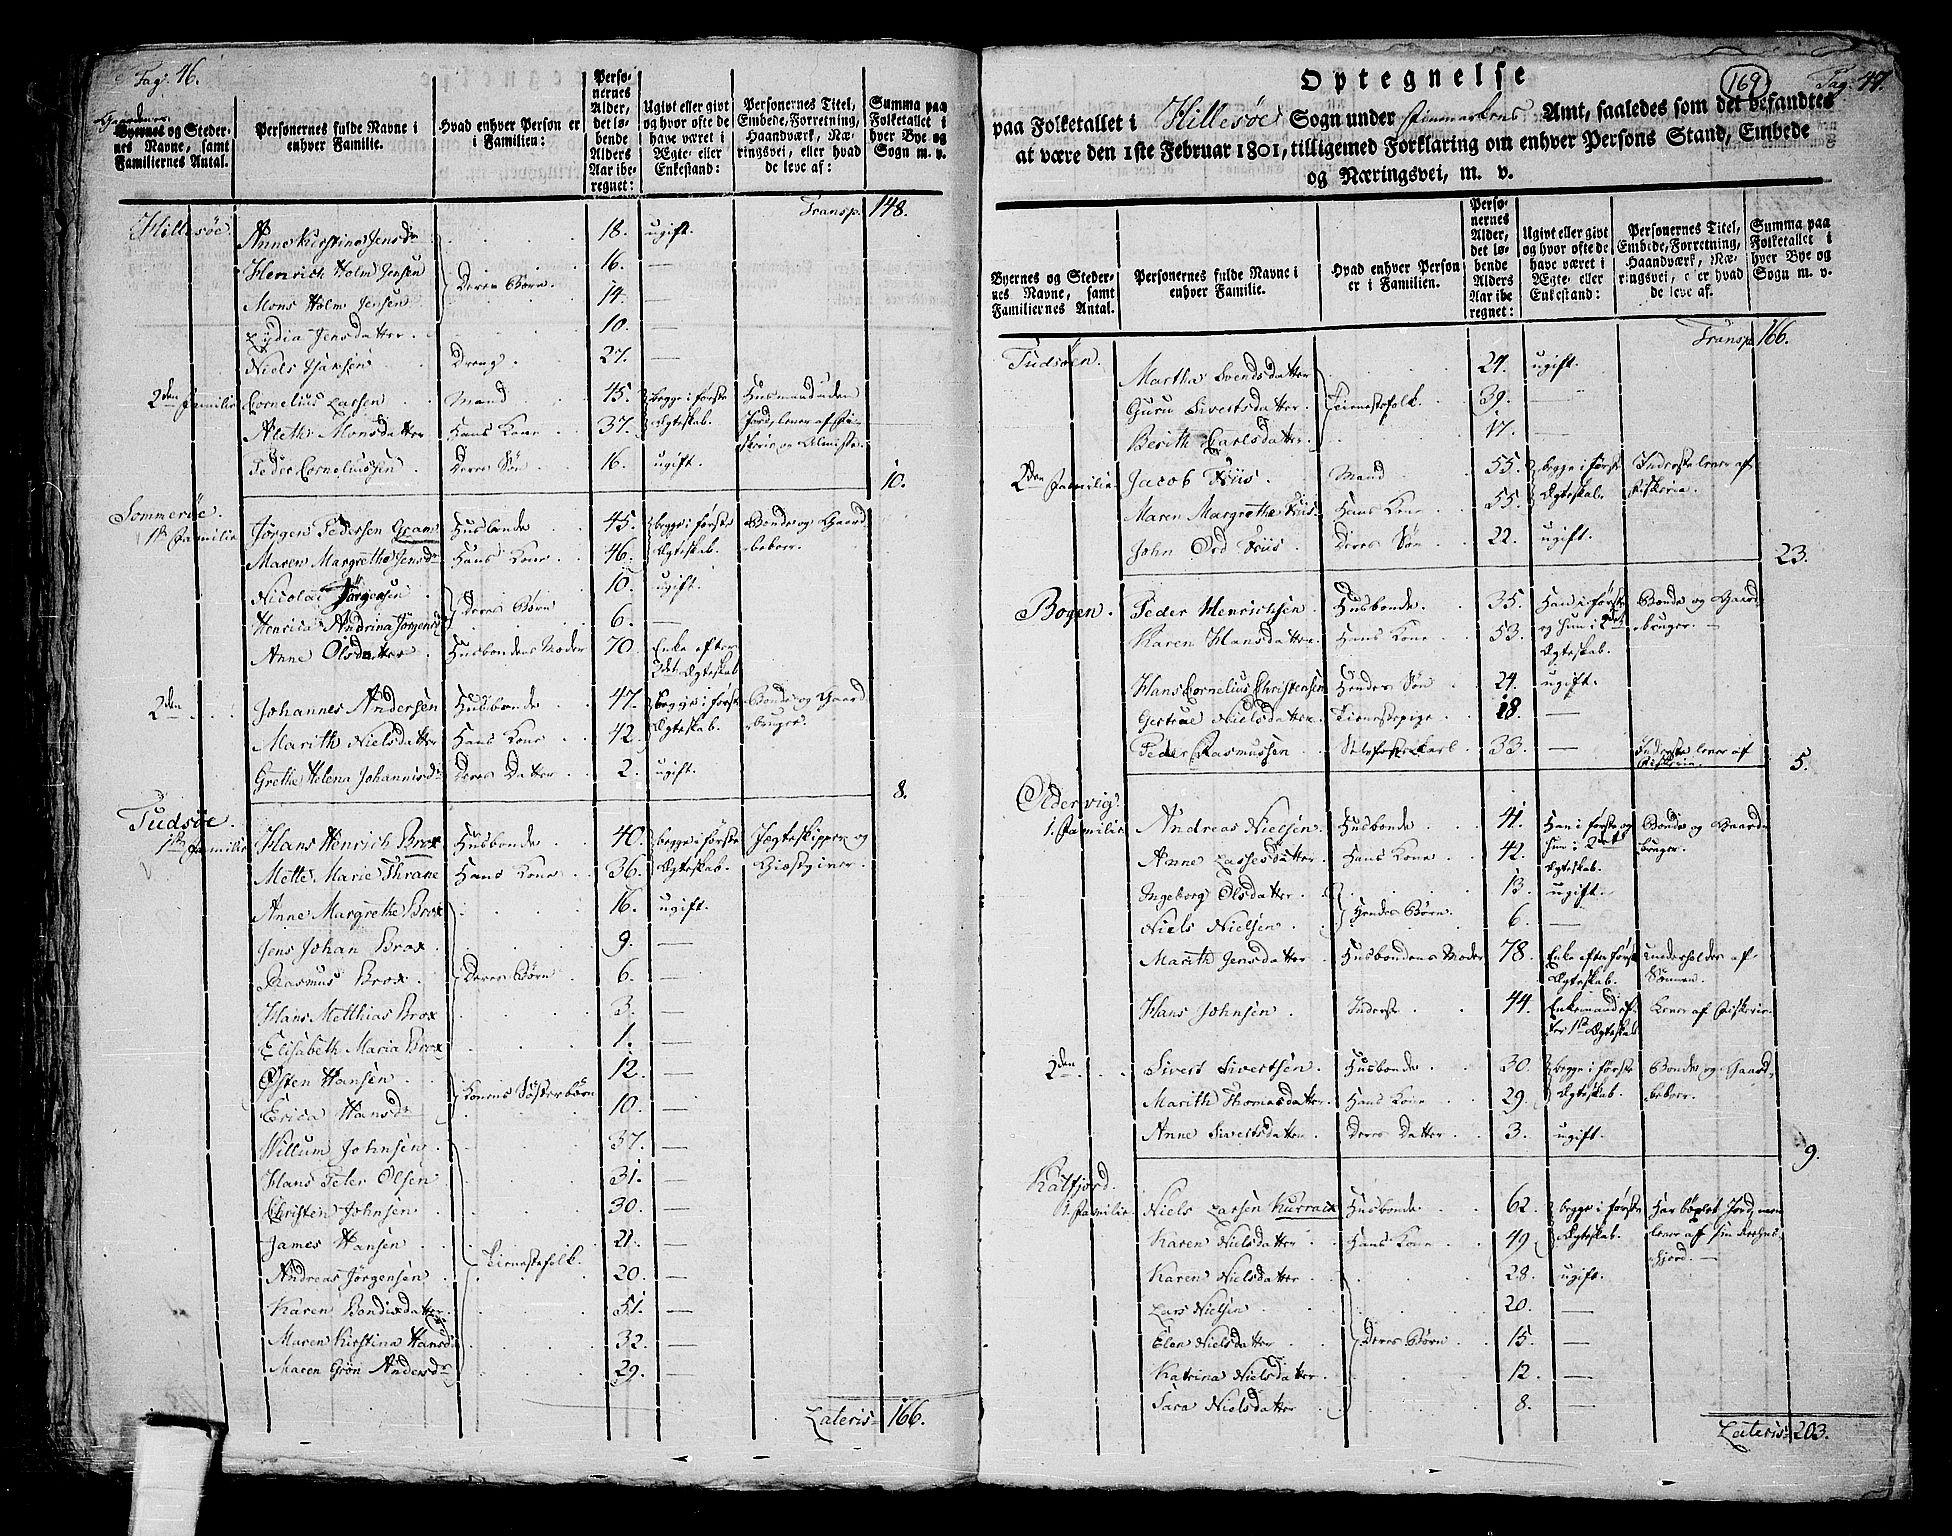 Pag. 46.
Gaardenes
Byernes og Steder-
nes Navne, samt
Familiernes Antal.
Personernes fulde Navne i
enhver Familie.
Hvad enhver Person er
i Familien:
Perso-
nernes
Alder,
det lø-
bende
Alders
Aar ibe-
regnet:
Ugivt eller givt
og hvor ofte de
have været i
Ægte- eller
Enkestand:
Personernes Titel,
Embede, Forretning,
Haandværk, Næ-
ringsvei, eller hvad
de leve af:
Summa paa
Folketallet i
hver Bye og
Sogn m. v.
Transp. 148.
Hillesøe Anne Kirstine Jensdr 18. ugift.
Henrich Holm Jensen 16. —
Deres Børn.
Mons Holm Jensen 14. —
Lydia Jensdatter 10. —
Niels Jansen Dreng. 27. —
2den Familie Cornelius Larsen Mand 45. begge i første Huusmand uden
Aleth Monsdatter Hans Kone 37. Ægteskab. Jord, lever af Fi-
skerie og Almisse.
Peder Corneliussen Deres Søn 16. ugift.
10.
Sommerøe.
1ste Familie Jørgen Pedersen Gram Husbonde 45. begge i første Bonde og Gaard
Maren Margrethe Jensdr Hans Kone 46. Ægteskab. beboer.
Nicolai Jørgensen 10. ugift.
Deres Børn
Henrica Andrina Jørgensd 6. —
Anne Olsdatter Husbondens Moder 70. Enke efter
2det Ægteskab
2den Johannes Andersen Husbonde 47. begge i første Bonde og Gaard
Marith Nielsdatter Hans Kone 42. Ægteskab. bruger.
Grethe Helena Johannisdr Deres Datter 2. ugift.
8.
Tudsøe.
1ste Familie Hans Henrich Brox Husbonde 40. begge i første Jægteskipper og
Mette Marie Thrane Hans Kone 36. Ægteskab. Giæstgiver.
Anne Margrethe Brox 16. ugift.
Jens Johan Brox 9. —
Rasmus Brox Deres Børn 6. —
Hans Metthias Brox 3. —
Elisabeth Maria Brox 1. —
Østen Hansen 12. —
Konens Søsterbørn
Erica Hansdr 10. —
Willum Johnsen 37. —
Hans Peter Olsen 31. —
Christen Johnsen 30. —
James Hansen 21. —
Tienestefolk.
Andreas Jørgensen 20. —
Karen Bendisdatter 51. —
Maren Kirstina Hansdr 32. —
Maren Grøn Andersdr 29. —
Lateris 166.
169
Pag. 47.
Optegnelse
paa Folketallet i Hillesøe Sogn under Finmarkens Amt, saaledes som det befandtes
at være den 1ste Februar 1801, tilligemed Forklaring om enhver Persons Stand, Embede
og Næringsvei, m. v.
Byernes og Steder-
nes Navne, samt
Familiernes Antal.
Personernes fulde Navne i
enhver Familie.
Hvad enhver Person
er i Familien.
Perso-
nernes
Alder,
det lø-
bende
Alders
Aar ibe
regnet:
Ugivt eller givt
og hvor ofte de
have været i
Ægte- eller
Enkestand:
Personernes Titel,
Embede, Forretning,
Haandværk, Næ-
ringsvei, eller hvad
de leve af.
Summa paa
Folketallet i
hver Bye og
Sogn m. v.
Transp 166.
Tudsøen. Martha Svendsdatter 24. ugift.
Guru Sivertsdatter Tienestefolk 39. —
Berith Carlsdatter 17. —
2den Familie. Jacob Friis Mand 55. begge i første Inderste lever af
Maren Margrethe Friis Hans Kone 55. Ægteskab. Fiskerie.
John Ord Friis Deres Søn 22. ugift.
23.
Bogen. Peder Henrichsen Husbonde. 35. Han i første Bonde og Gaard
Karen Hansdatter Hans Kone 53. og hun i 2det bruger. —
Ægteskab.
Hans Cornelius Christensen Hendes Søn 24. ugift.
Gertrue Nielsdatter Tienestepige 18. —
Peder Rasmussen Selvfosterkarl 33. — Inderste lever af
Fiskerie.
5.
Oldervig.
1. Familie Andreas Nielsen Husbonde 41. Han i første og Bonde og Gaard
Anne Lassesdatter Hans Kone 42. hun i 2det bruger.
Ægteskab.
Ingeborg Olsdatter 13. ugift.
Hendes Børn.
Niels Nielsen 6. —
Marith Jensdatter Husbondens Moder 78. Enke efter først underholdes af
Ægteskab. Sønnen.
Hans Johnsen Inderst 44. Enkemand ef- Lever af Fiskerie.
ter 1ste Ægteskab
2den Sivert Sivertsen Husbonde 30. begge i første Bonde og Gaard,
Marith Thomasdatter Hans Kone 29. Ægteskab. beboer.
Anne Sivertsdatter Deres Datter 3. ugift.
9.
Kalfjord.
1. Familie Niels Larsen Kurrack Husbonde 62. begge i første Har böxlet Jord, men
Karen Nielsdatter Hans Kone 49 Ægteskab. lever af
Karen Nielsdatter 28. ugift.
Lars Nielsen 20. —
Elen Nielsdatter Deres Børn 15. —
Katrina Nielsdatter 12. —
Sara Nielsdatter 8. —
Lateris 203.